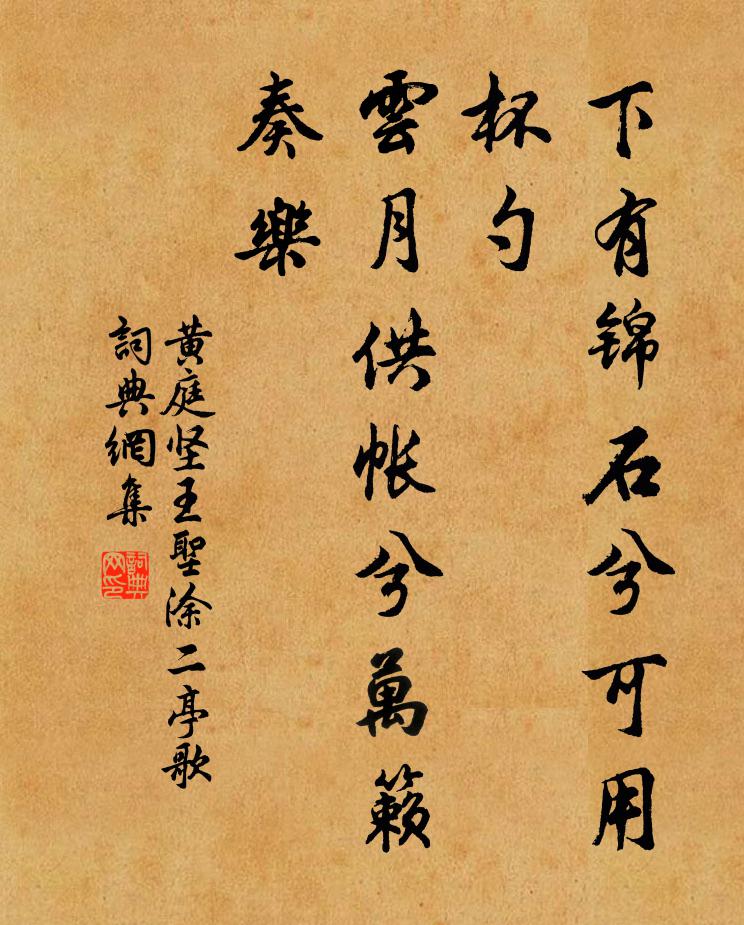 下有锦石兮可用
杯勺
雲月供帐兮萬籟
奏樂
黄庭坚王聖涂二亭歌
詞典網集
詞典网印